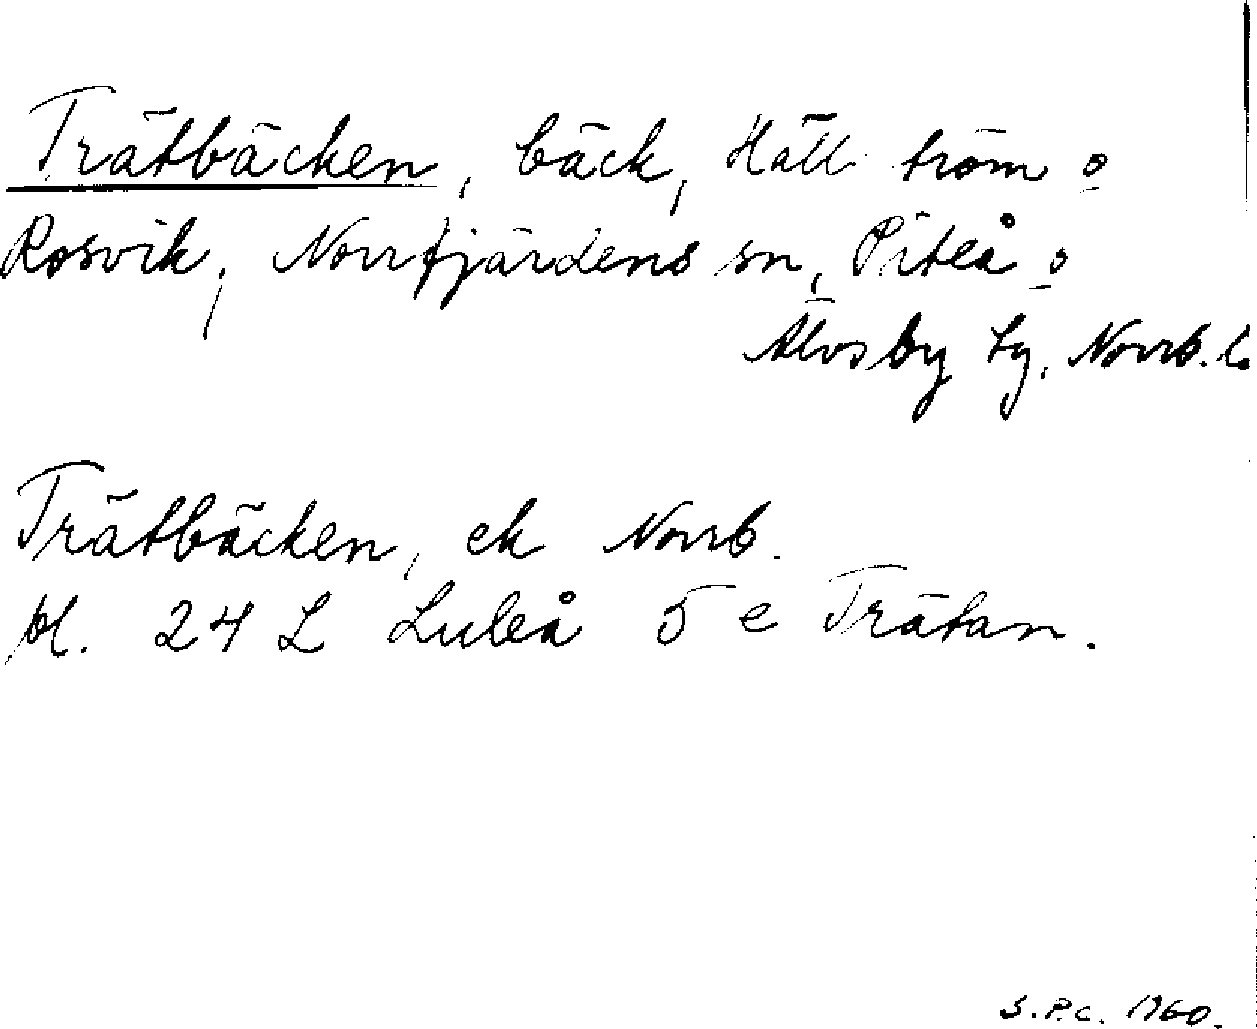 Trätbäcken, bäck, Häll tröm o
Rosvik, Norrfjärdens sn, Piteå o
Älvsby tg, Norrb. l.
Trätbäcken, ek Norrb.
bl. 24 L Luleå 5 e Trätan.
S.P.C. 1960.